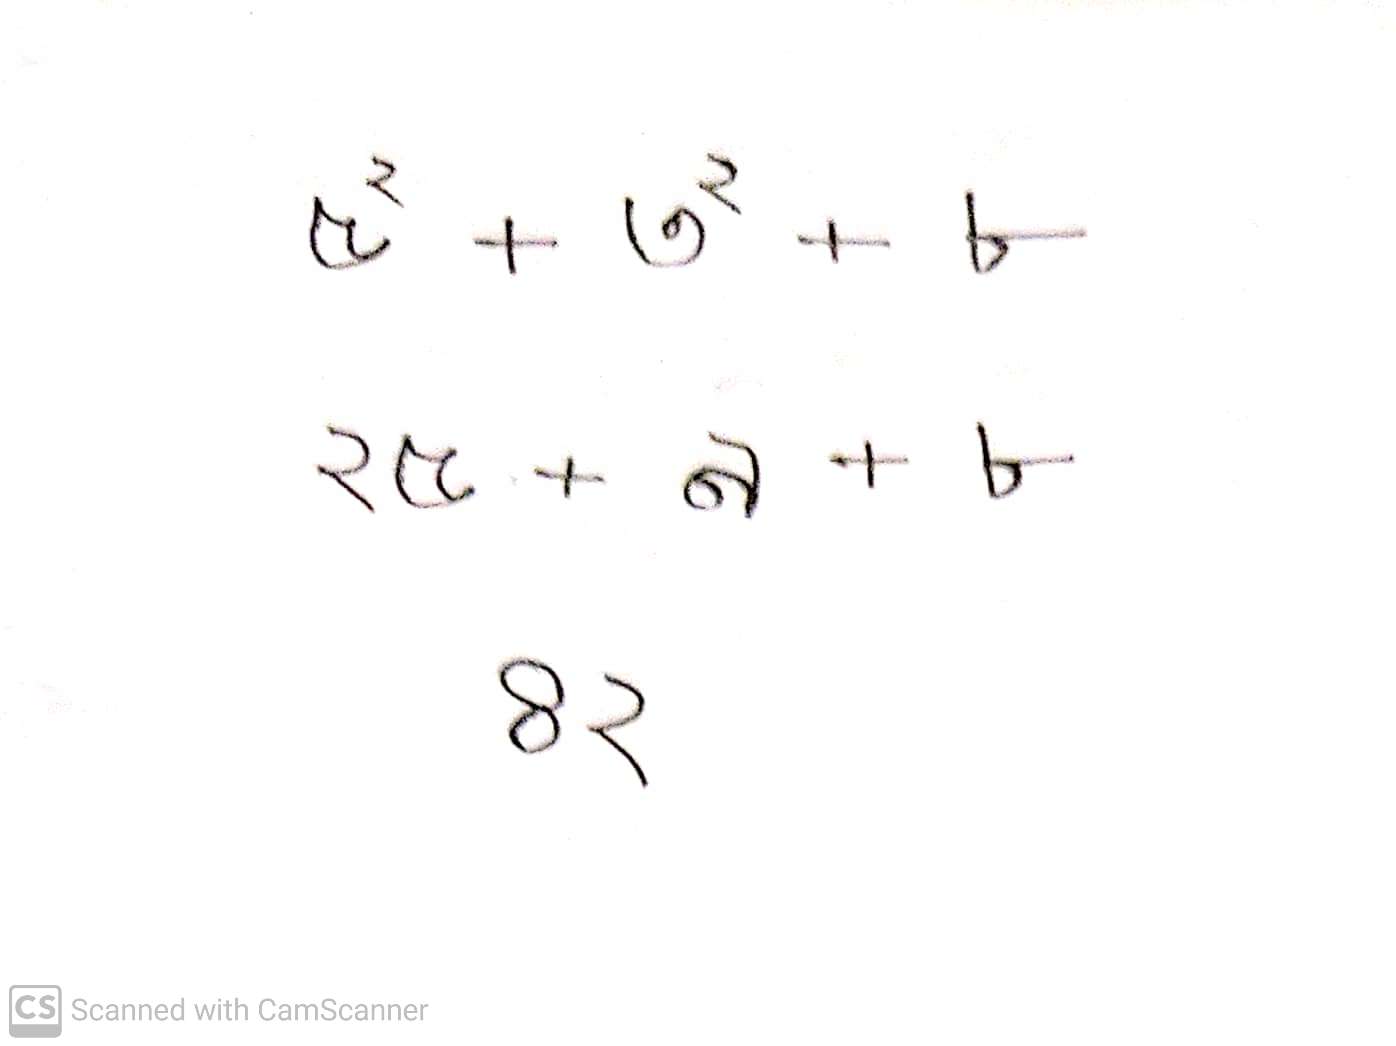 ৫² + ৩² + ৮
২৫ + ৯ + ৮
৪২
CS Scanned with CamScanner